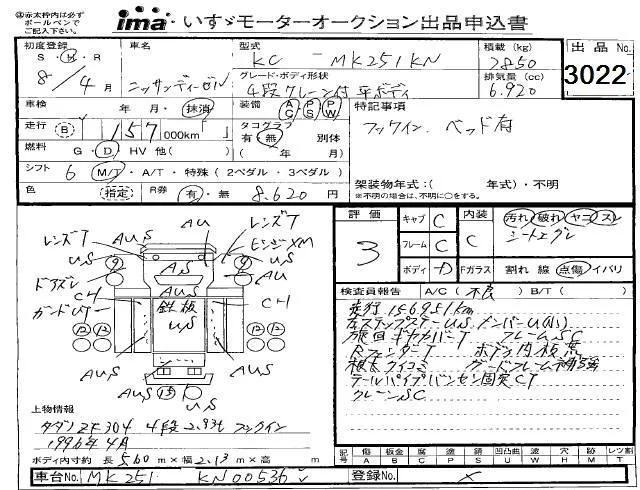 ㊟赤太枠内は必ず ボールペンで ご記入下さい。
ima いすゞモーターオークション出品申込書
初度登録 S・H・R 8/4月
車名 ニッサンディーゼル
型式 KC - MK251KN
積載 (kg) 2850
出品 No. 3022
グレード・ボディ形状 4段クレーン付 平ボディ
排気量 (cc) 6.920
車検 年 月・抹消
装備 AC PS PW
特記事項
フックイン. ベッド有
走行 B 157,000km
タコグラフ 有・無 別体 ( 年 月)
燃料 G・D・HV 他( )
シフト 6 M/T・A/T・特殊 (2ペダル・3ペダル)
架装物年式:( 年式)・不明
※不明の場合は、不明に○をする。
色 (指定) R券 有・無 8.620 円
評価 3
キャブ C
フレーム C
ボディ D
内装 C
Fガラス
汚れ 破れ ヤコゲ スレ
シートエグレ
割れ 線 点傷 イバリ
検査員報告 A/C( 不良 ) B/T( )
走行 156951km
左ステップステーUS メンバーU(小)
旋回ギヤカバーT フレームSC
RフェンダーT ボデー内板荒
根太クイコミ ガードフレーム補強
テールパイプバンセン固定 CT
クレーンSC
レンズT AUS AU レンズT
US ⑨ AS ⑨ US
ドアズレ AUS AU
CH 鉄板 CH
US
⑫ ⑫ ⑫ ⑫
AUS ⑬ AUS
US
上物情報
タダノ ZF304 4段 2.93t フックイン
1996年4月
ボディ内寸約 長 5.60 m×幅 2.13 m×高 m
記号 傷 A 板金 B 腐 C 塗 P 錆 S 凹 U 凸凹曲 W 波 W 穴 H 跡 M 切 T
車台No. MK251 - KN00536
登録No. ×